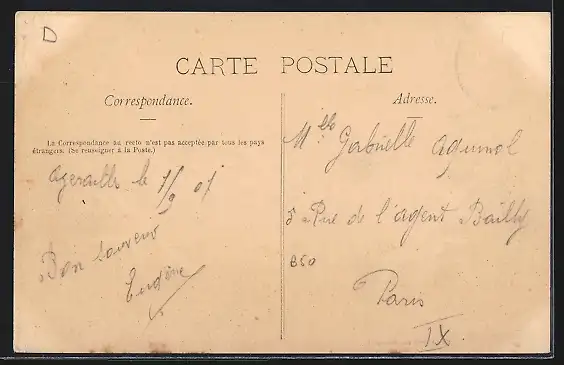 D
CARTE POSTALE
Correspondance.
La Correspondance au recto n'est pas acceptée par tous les pays
étrangers. (Se renseigner à la Poste.)
Azerailles le 1/9 07
Bon souvenir
Eugène
Adresse.
Mlle Gabrielle
5 Rue de l'agent Bailly
Paris
IX